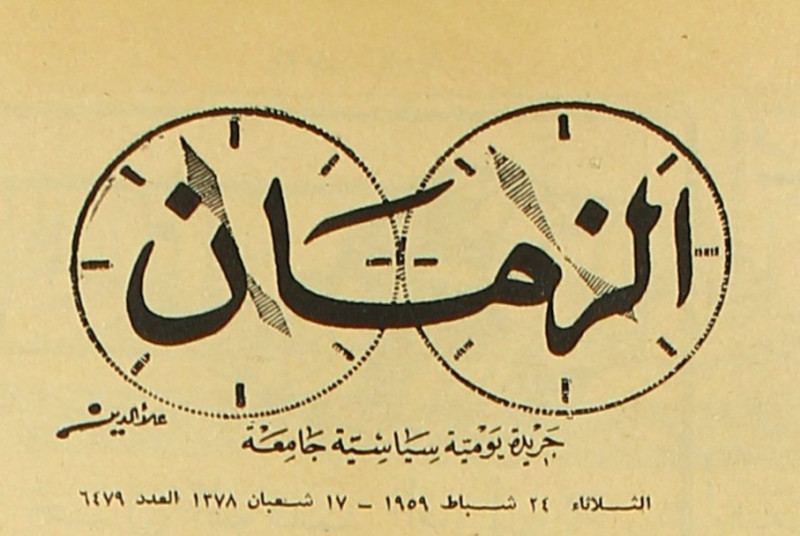 الزمان
علاء الدين
جَريْدة يَوْميّة سِيَاسِيّة جَامِعَة
الثلاثاء ٢٤ شباط ١٩٥٩ – ١٧ شعبان ١٣٧٨ العدد ٦٤٧٩